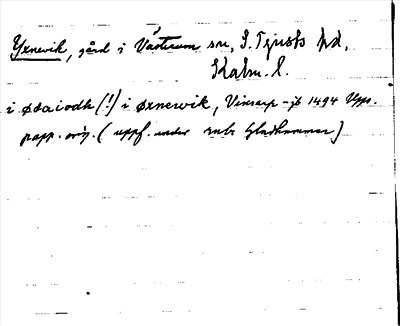 Yxnevik, gård i Västrum sn, S. Tjusts hd,
Kalm. l.
i ødaiodh (!) i øxnewik, Vinsarp -jb 1494 Upps.
papp. orig. (uppf. under rubr Gladhammar)